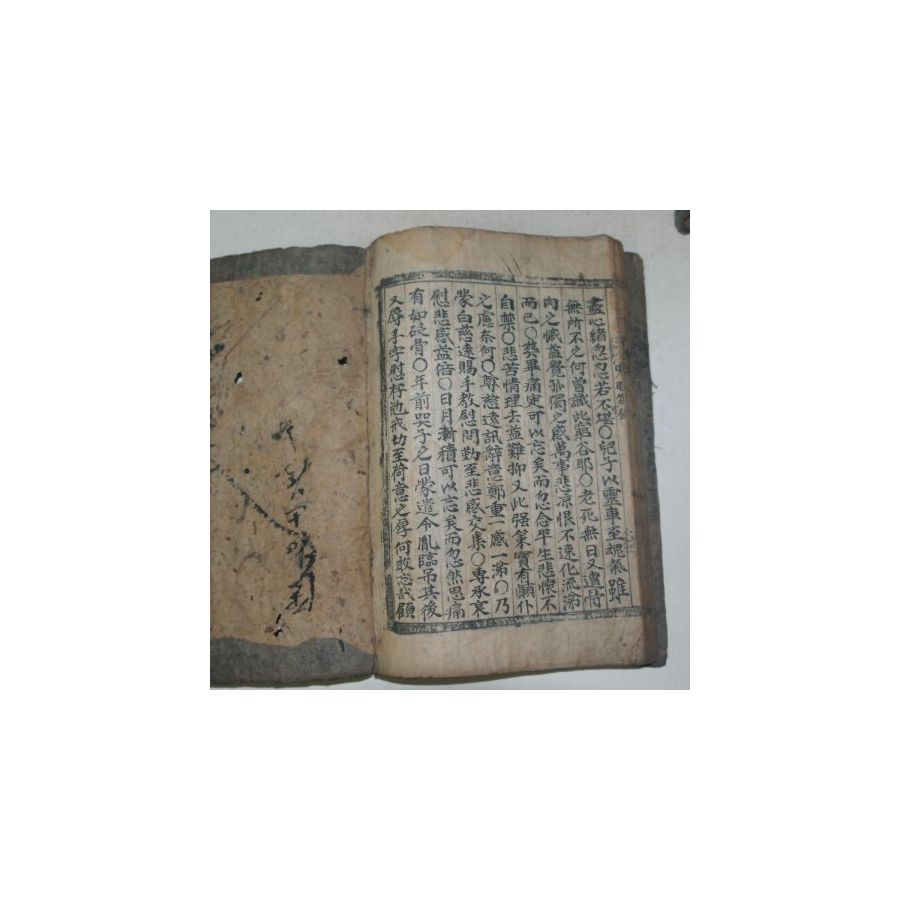 盡心緖忽忽若不堪○記子以靈車至魂氣雖
無所不之何嘗識此窮谷耶○老死無日又遭骨
肉之慽益覺孤獨之感萬事悲凉恨不速化流涕
而已○葬畢痛定可以忘矣而忽念平生悲懷不
自禁○悲苦情理去益難抑又此强策實有顚仆
之慮奈何○尊慈遠訊辭意鄭重一感一涕○乃
蒙白慈遠賜手敎慰問勤至悲感交集○專承哀
慰悲感益倍○日月漸積可以忘矣而忽然思痛
有如砭骨○年前哭子之日蒙遣令胤臨吊其後
又辱手字慰 戒切至荷意之厚何敢忘哉顧